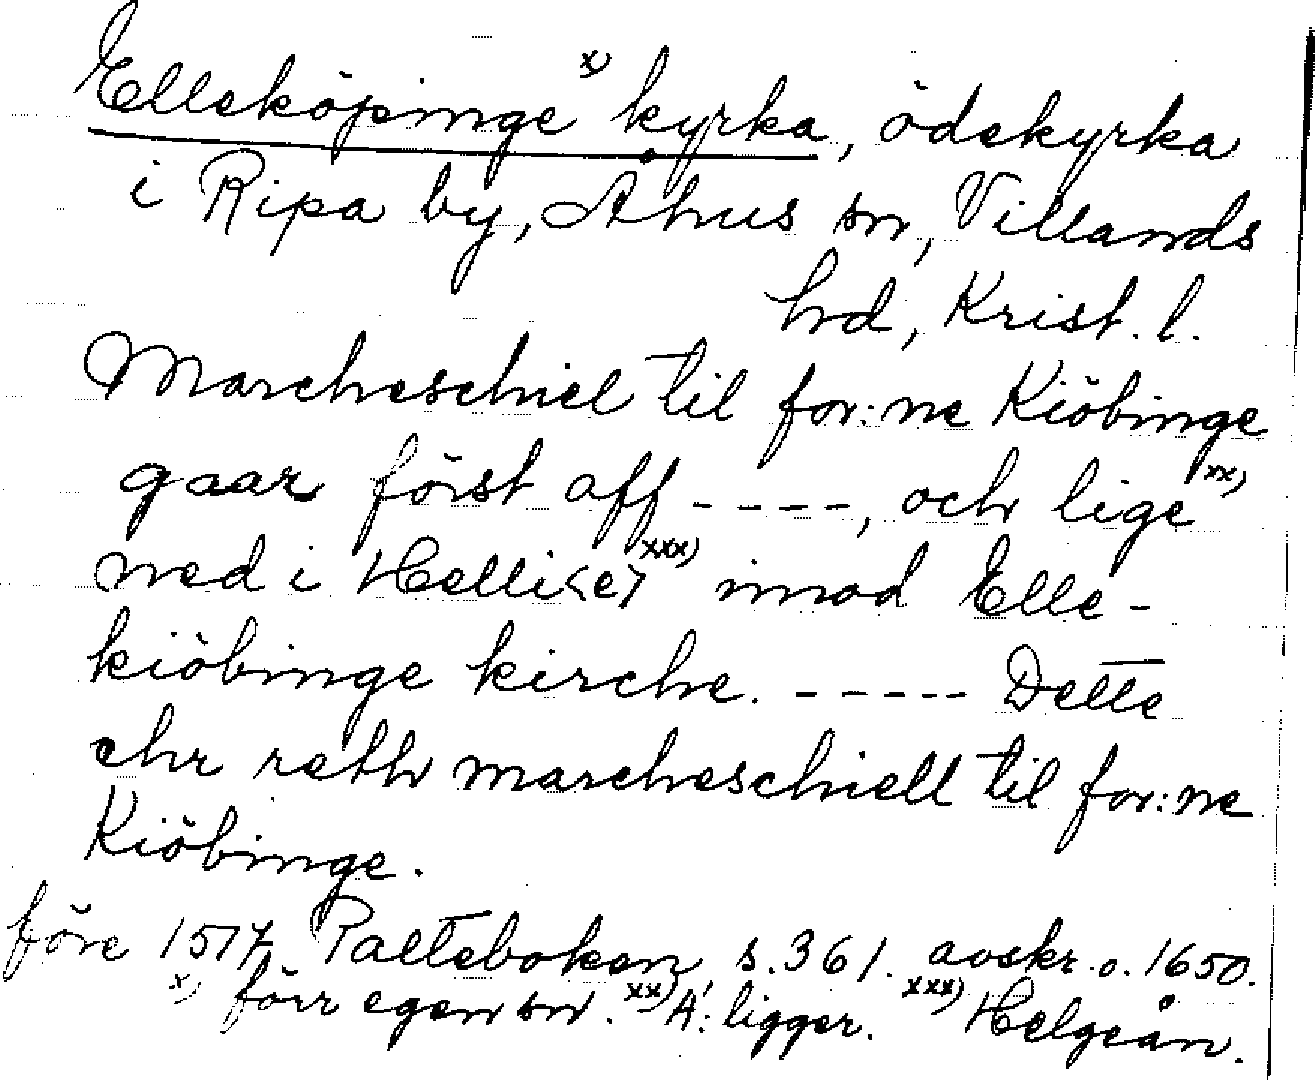 Elleköpinge x) kyrka, ödekyrka
i Ripa by, Åhus sn, Villands
hd, Krist. l.
Marcheschiel til for:ne Kiöbinge
gaar först aff - - - -, och lige xx)
ned i Helli<e> xxx) imod Elle-
kiöbinge kirche. - - - - - Dette
ehr reth marcheschiell til for:ne
Kiöbinge.
före 1517. Palteboken, s. 361. avskr. o. 1650.
x) förr egen sn. xx) A: ligger. xxx) Helgeån.